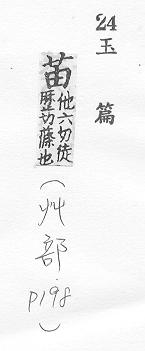 24
玉篇
苖 他六切徒
歷切蓨也
(艸部 p198)